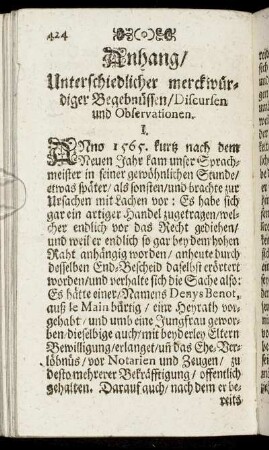 424
Anhang/
Unterschiedlicher merckwür-
diger Begebnüssen/Discursen
und Observationen.
I.
ANno 1565. kurtz nach dem
Neuen Jahr kam unser Sprach-
meister in seiner gewöhnlichen Stunde/
etwas später/als sonsten/und brachte zur
Ursachen mit Lachen vor: Es habe sich
gar ein artiger Handel zugetragen/wel-
cher endlich vor das Recht gediehen/
und weil er endlich so gar bey dem hohen
Raht anhängig worden/anheute durch
desselben End-Bescheid daselbst erörtert
worden/und verhalte sich die Sache also:
Es hätte einer/Namens Denys Benot,
auß le Main bürtig/eine Heyrath vor-
gehabt/und umb eine Jungfrau gewor-
ben/dieselbige auch/mit beyderley Eltern
Bewilligung/erlanget/uñ das Ehe-Ver-
löbnüs/vor Notarien und Zeugen/zu
desto mehrerer Bekräfftigung/offentlich
gehalten. Darauf auch/nach dem er be-
reits